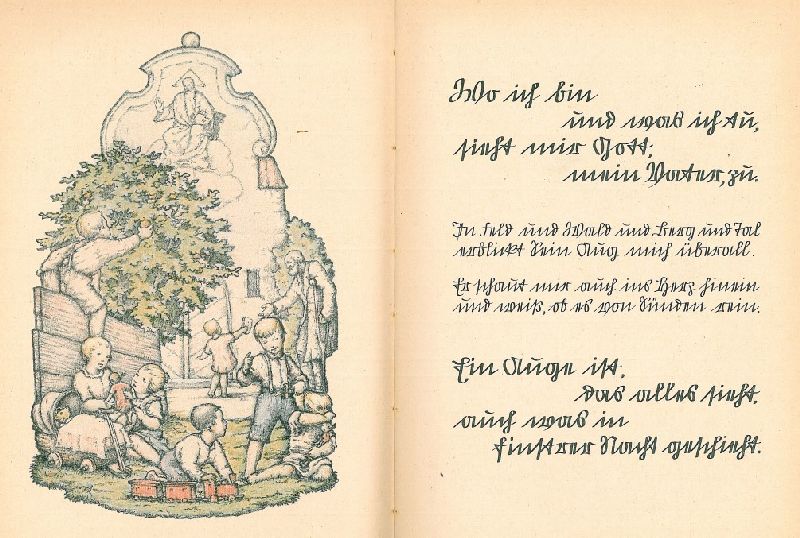 Wo ich bin
und was ich tu,
sieht mir Gott,
mein Vater, zu.
In Feld und Wald und Berg und Tal
erblickt Sein Aug mich überall.
Er schaut mir auch ins Herz hinein
und weiß, ob es von Sünden rein.
Ein Auge ist,
das alles sieht,
auch was in
finstrer Nacht geschieht.